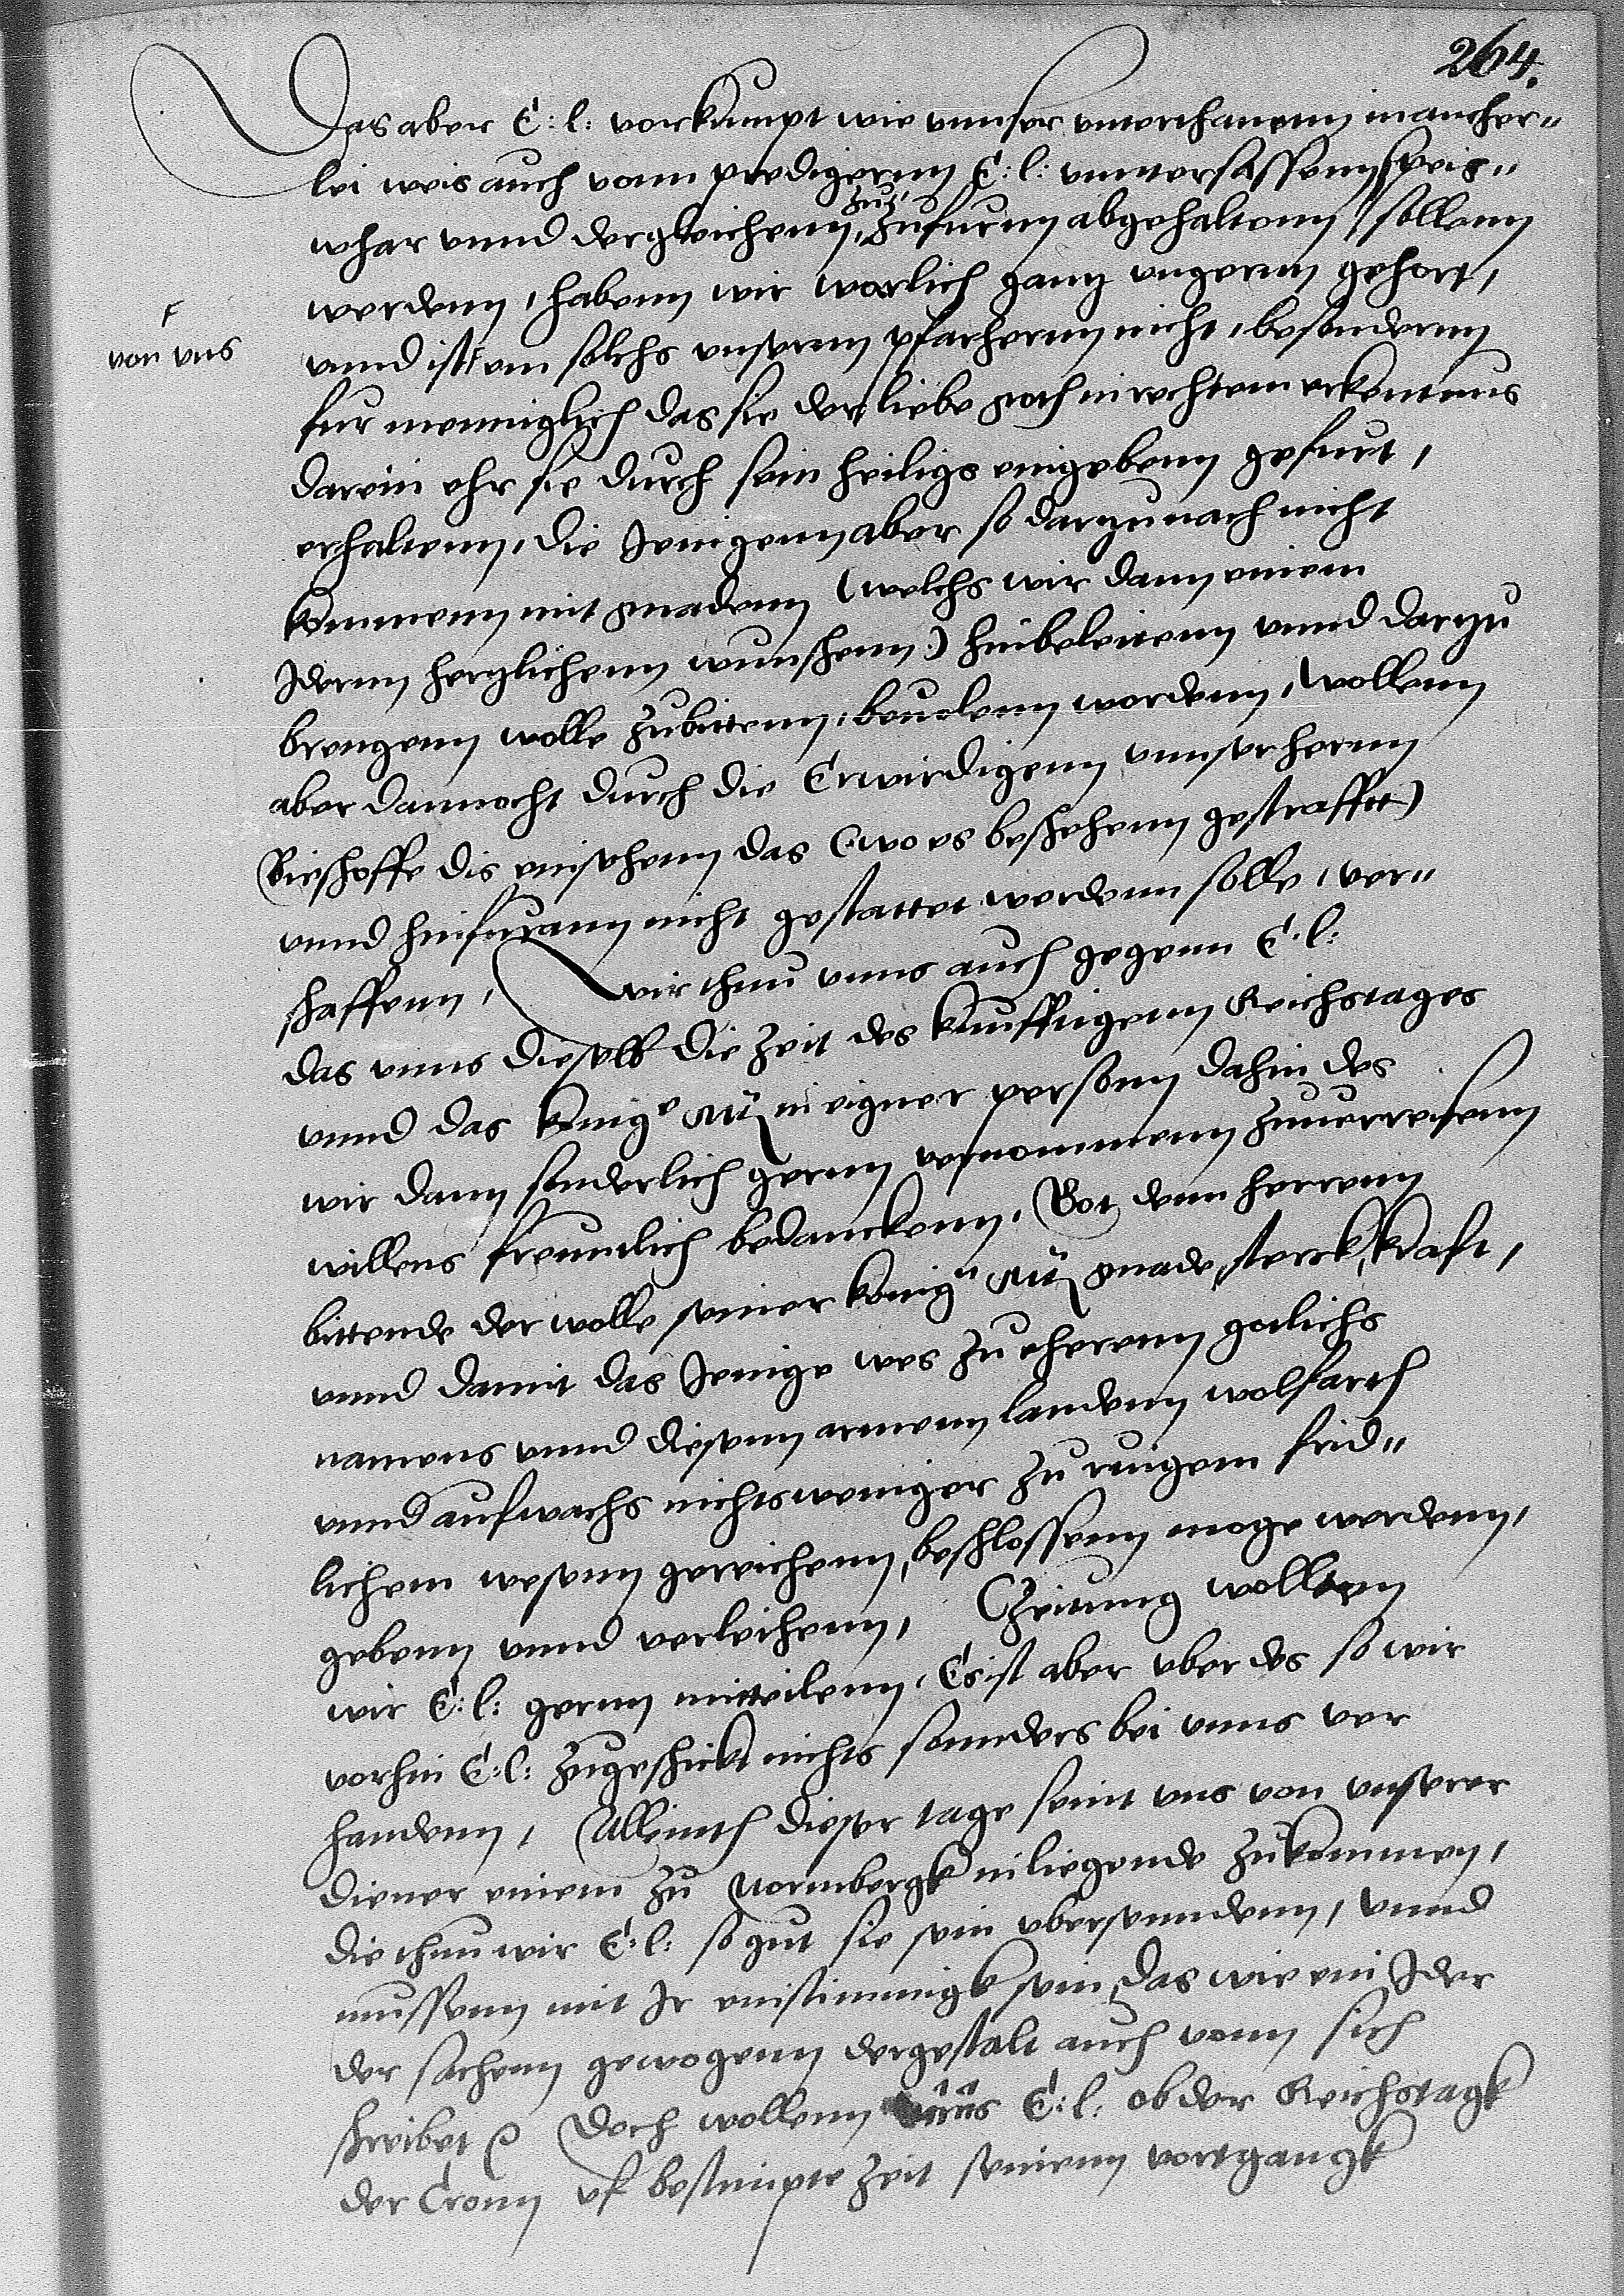 264.
Das aber E: l: vorkumpt wie vnnser vnterthanenn mancher-
lei weis auch vonn predigernn E: l: vnntersassenn speis-
whar vnnd dergleichenn, zuz, zufurnn abgehaltenn sollenn
werdenn, habenn wir warlich gantz vngernn gehort,
von vns
vnnd ist vm solchs vnsernn pfarhernn nicht, besondernn
fur menniglich das sie der liebe goth in rechtem erkentnus
darein ehr sie durch sein heiligs eingebenn gefurt,
erhaltenn, die Jenigenn aber so dartzu nach nicht
kommenn mit gnadenn (welchs wir dann einem
Idernn hertzlichenn wunschenn:) hinbeleitenn vnnd dartzu
brengenn wolle zubittenn, beuolenn wordenn, Wollenn
aber dannocht durch die Erwirdigenn vnnser hernn
Bieschoffe dis einsehenn das (wo es beschehenn gestrafft)
vnnd hinfurann nicht gestattet werdenn solle, ver-
schaffenn, Wir thun vnns auch gegenn E: l:
das vnns dieselb die zeit des kunfftigenn Reichstages
vnnd das konige Mt in eigner personn dahin des
wir dann sonderlich gernn vernommenn zuuerreisenn
willens freuntlich bedanckenn, Got denn herrenn
bittende der wolle seiner konign Mt gnade, sterck, kraft,
vnnd damit das Jenige wes zu eherenn gotlichs
namens vnnd diesenn armenn landenn wolfarth
vnnd aufwachs nichtsweniger zu ruigem frid-
lichem wesenn gereichenn, beschlossenn moge werdenn,
gebenn vnnd verleihenn, Zeitung wolltenn
wir E: l: gernn mitteilenn, Es ist aber vber das so wir
vorhin E: l: zugeschickt nichts sonnders bei vnns ver
handenn, Alleinth dieser tage seint vns von vnserer
diener einem zu Normbergk inliegende zukommen,
die thun wir E: l: so gut sie sein vbersenndenn, vnnd
mussenn mit Ir einstimmigk sein, das wie ein Ider
der sachenn gewogenn dergestalt auch vonn sich
schreibet Doch wollenn vnns E: l: ob der Reichstagk
der Cronn vf bestimpte zeit seinenn vortgangk